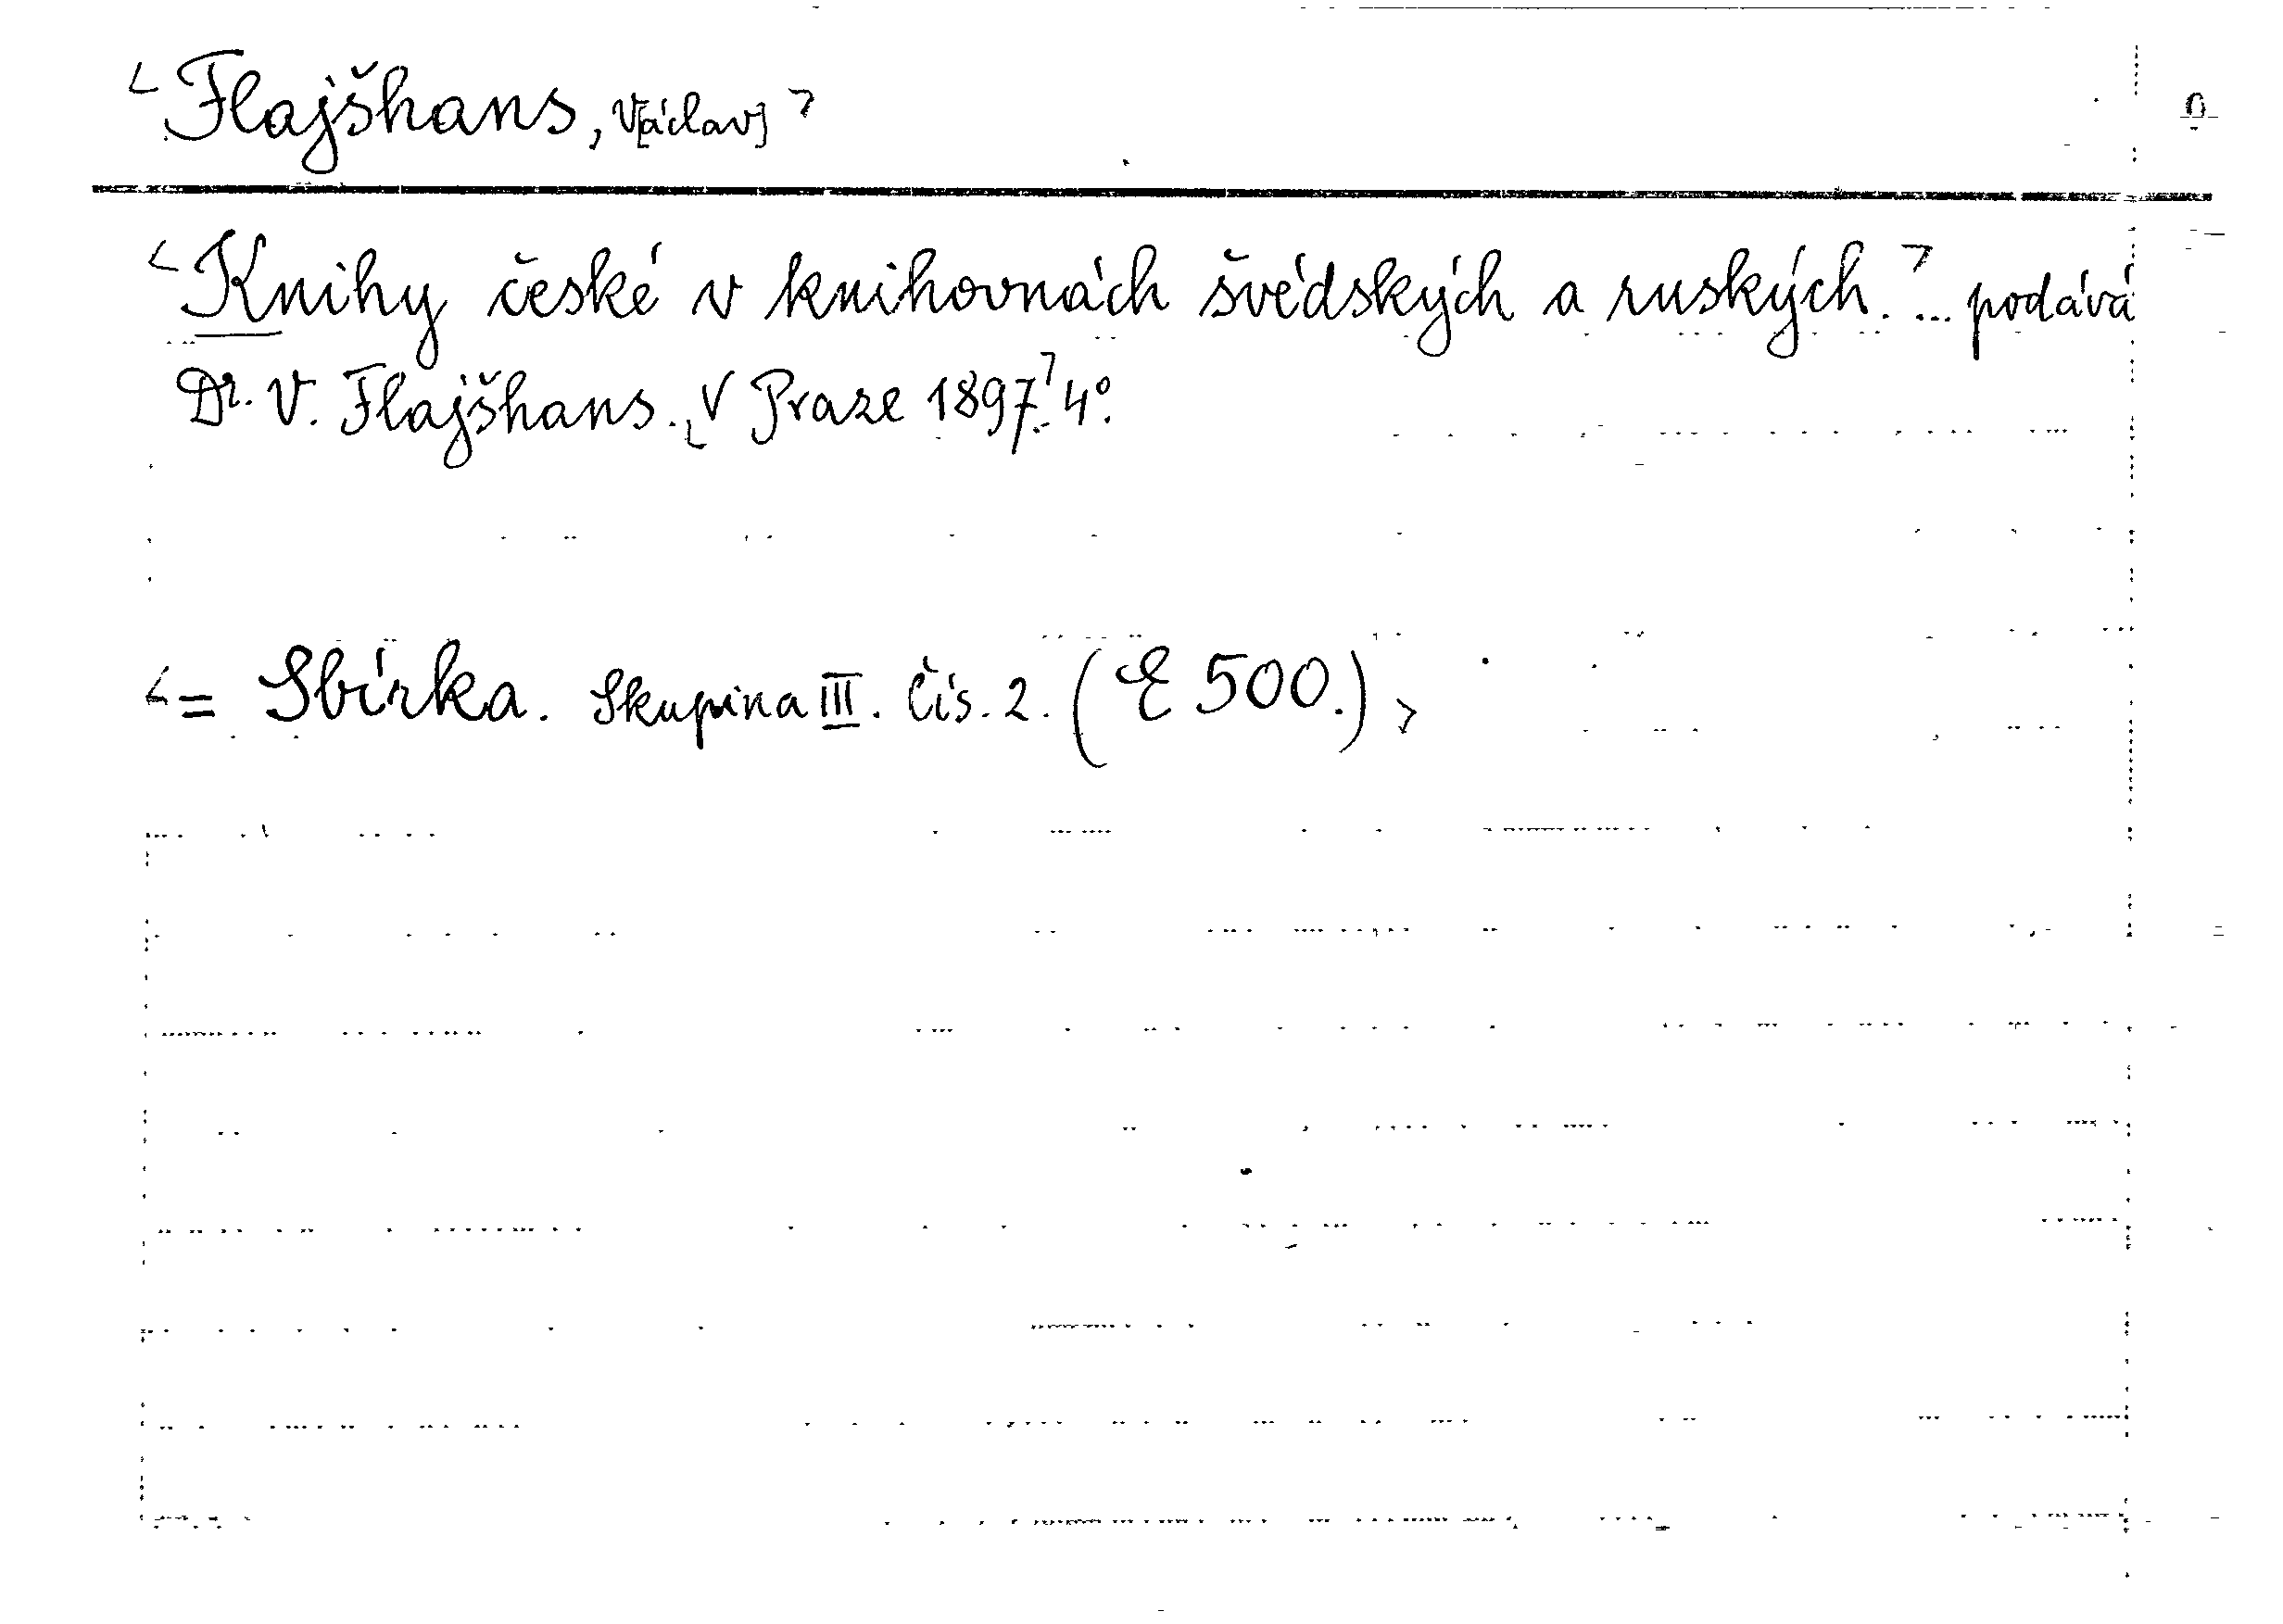 Flajšhans, V[áclav]
Knihy české v knihovnách švédských a ruských. ... podává
Dr. V. Flajšhans. V Praze 1897. 4°.
= Sbírka. Skupina III. Čís. 2. (E 500.)